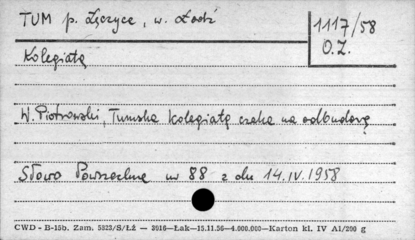 TUM p. Łęczyca, w. Łódź
1117/58
O.Z.
Kolegiata
W. Piotrowski, Tumska Kolegiata czeka na odbudowę
Słowo Powszechne nr 88 z dn 14.IV.1958
CWD - B-15b. Zam. 5823/S/ŁŻ — 3016—Łak—15.11.56—4.000.000—Karton kl. IV A1/200 g